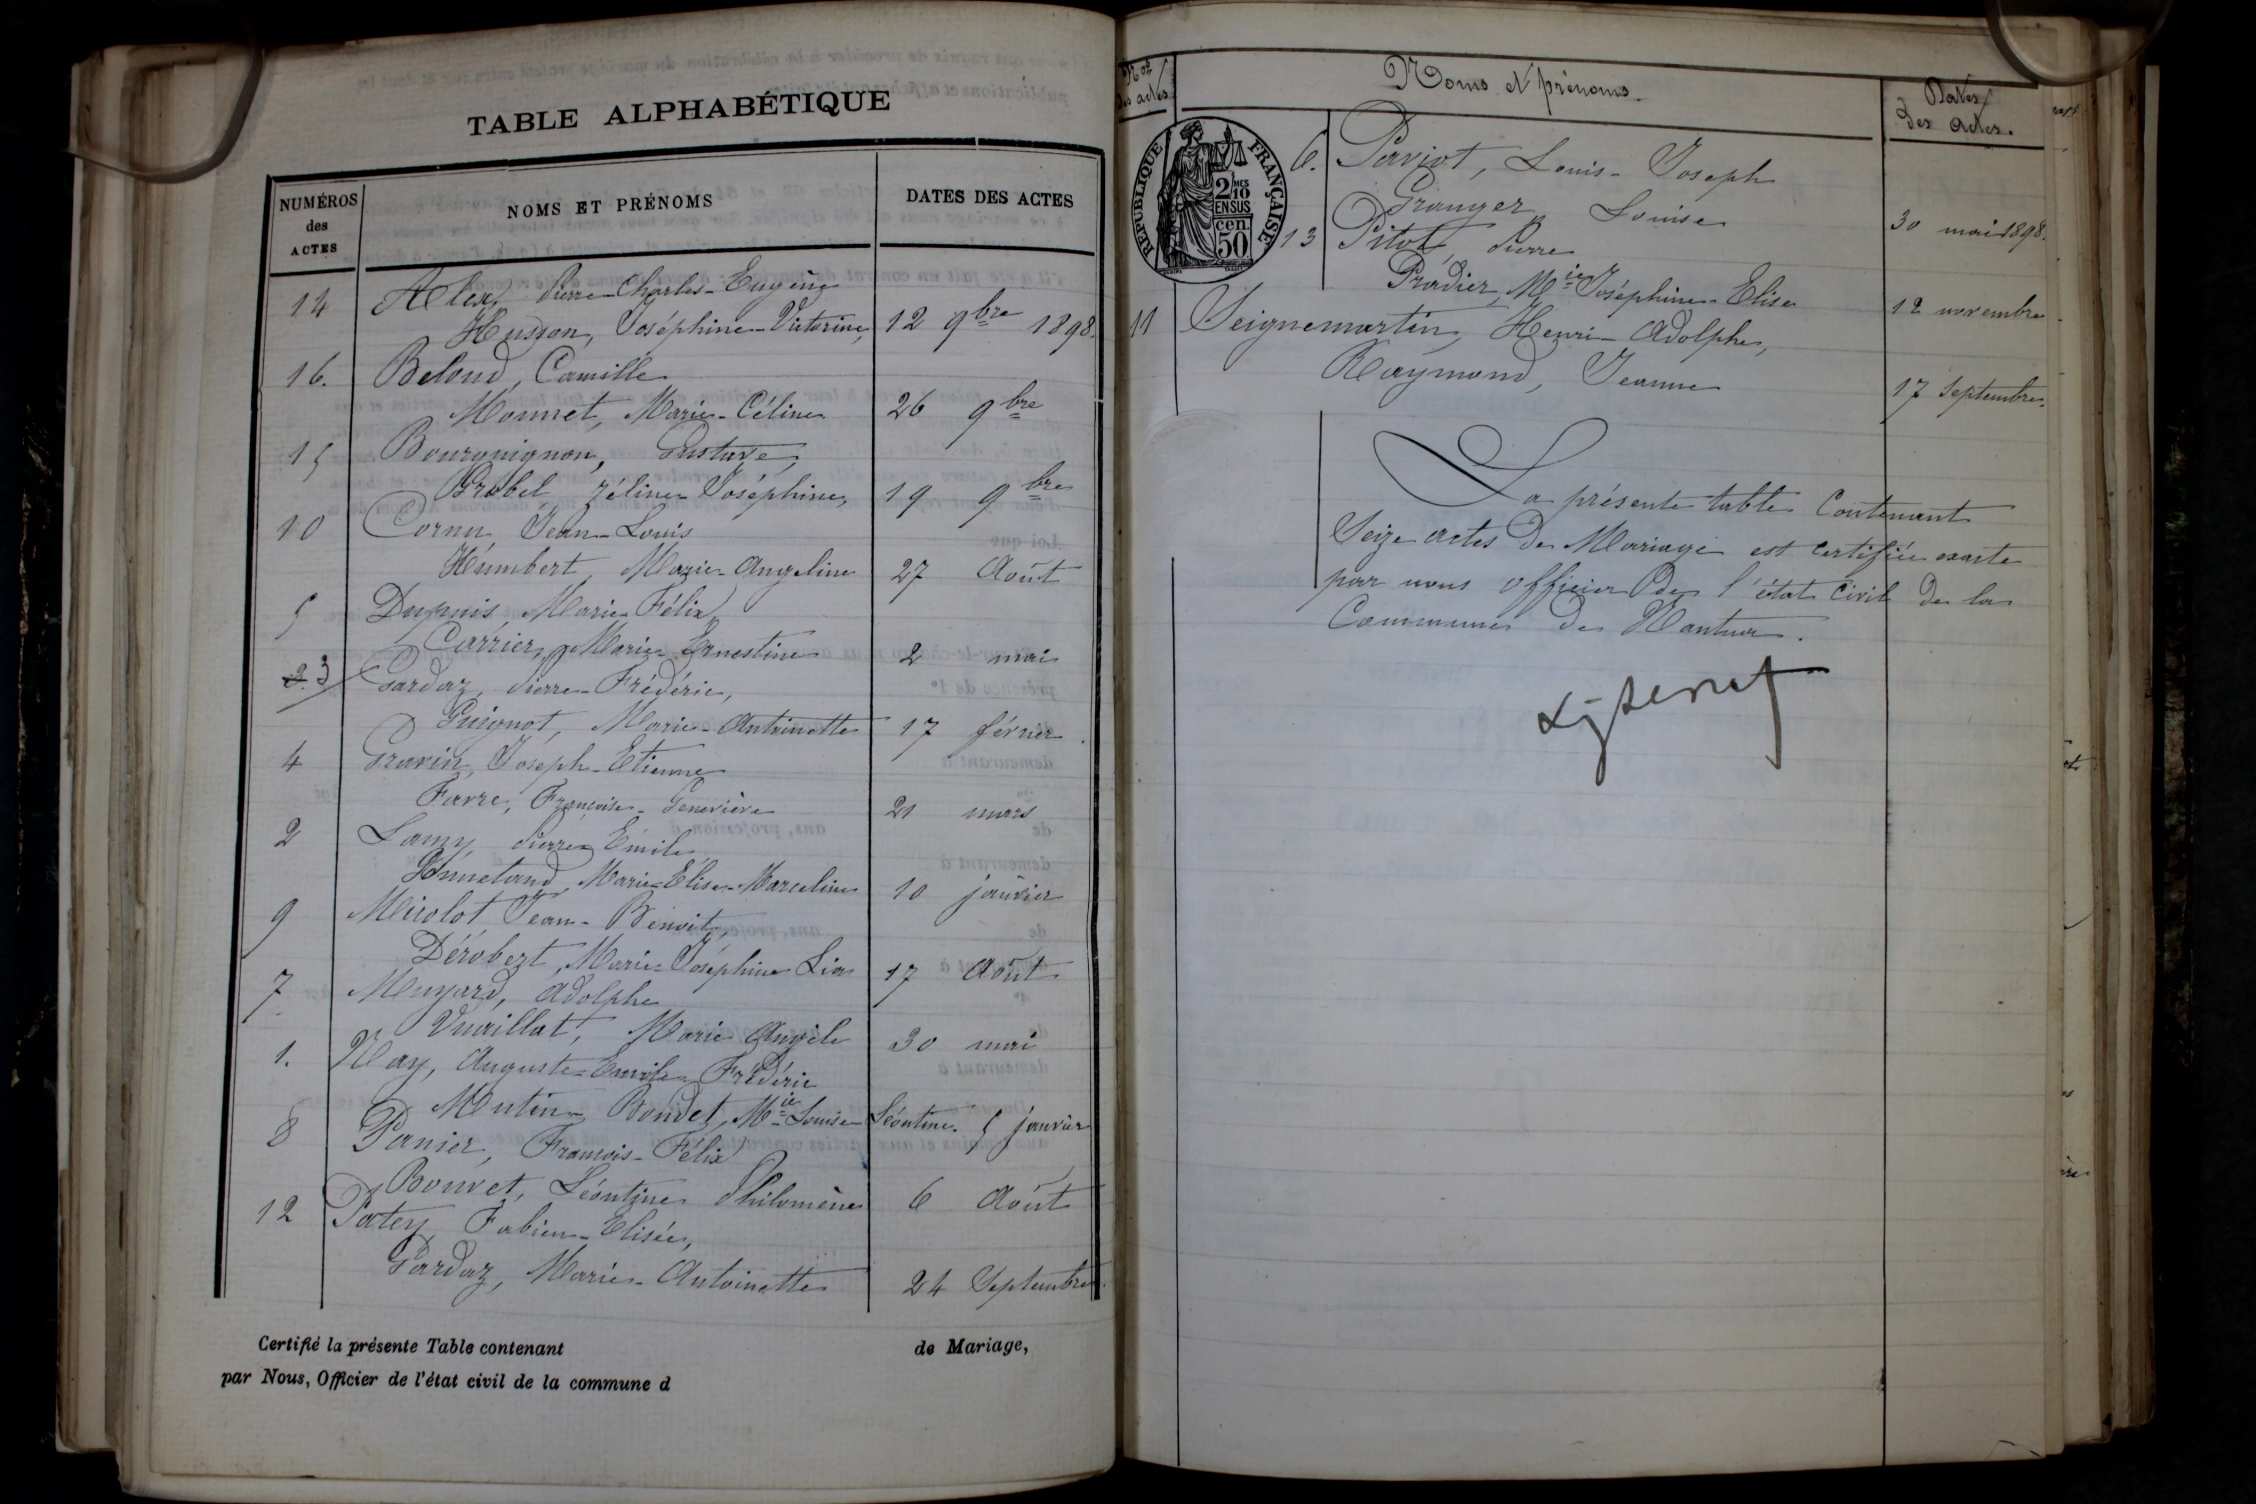 TABLE ALPHABÉTIQUE
NUMÉROS
des
ACTES
NOMS ET PRÉNOMS
DATES DES ACTES
14 Alex, Pierre-Charles-Eugène
Husson, Joséphine-Victorine, 12 9bre 1898.
16. Beloud, Camille
Monnet, Marie-Céline 26 9bre
15 Bourguignon, Gustave,
Brobel Zéline-Joséphine, 19 9bre
10 Cornu Jean-Louis
Humbert, Marie-Angeline 27 Août
5 Dupuis, Marie-Félix
Carrier, Marie-Ernestine 2 mai
3 Gardaz, Pierre-Frédéric,
Guignot, Marie-Antoinette 17 février
4 Gravin, Joseph-Etienne
Favre, Françoise-Geneviève 21 mars
2 Lamy Pierre Emile
Marie-Élise-Marceline 10 janvier
9 Miolot Jean-Benoit,
Dérobert, Marie-Joséphine Lia 17 Août
7 Muyard, Adolphe
Vuaillat, Marie Angèle 30 mai
1. Nay, Auguste-Emile-Frédéric
Mutin-Bondet, Mie-Louise-Léontine. 5 janvier
8 Panier, François-Félix
Bouvet, Léontine Philomène 6 Août
12 Patey Fabien-Elisée,
Gardaz, Marie-Antoinette 24 Septembre
Certifié la présente Table contenant de Mariage,
par Nous, Officier de l'état civil de la commune d
Nos
des actes
Noms et prénoms
Dates
des actes.
RÉPUBLIQUE FRANÇAISE
2/10
EN SUS
50 cen.
6. Paviot, Louis-Joseph
Granger Louise 30 mai 1898.
13 Pitot Pierre
Pradier, Mie Joséphine-Elise 12 novembre
11 Seignemartin, Henri-Adolphe,
Raymond, Jeanne 17 septembre.
La présente table contenant
Seize actes de Mariage est certifiée exacte
par nous officier de l'état civil de la
Commune de Nantua.